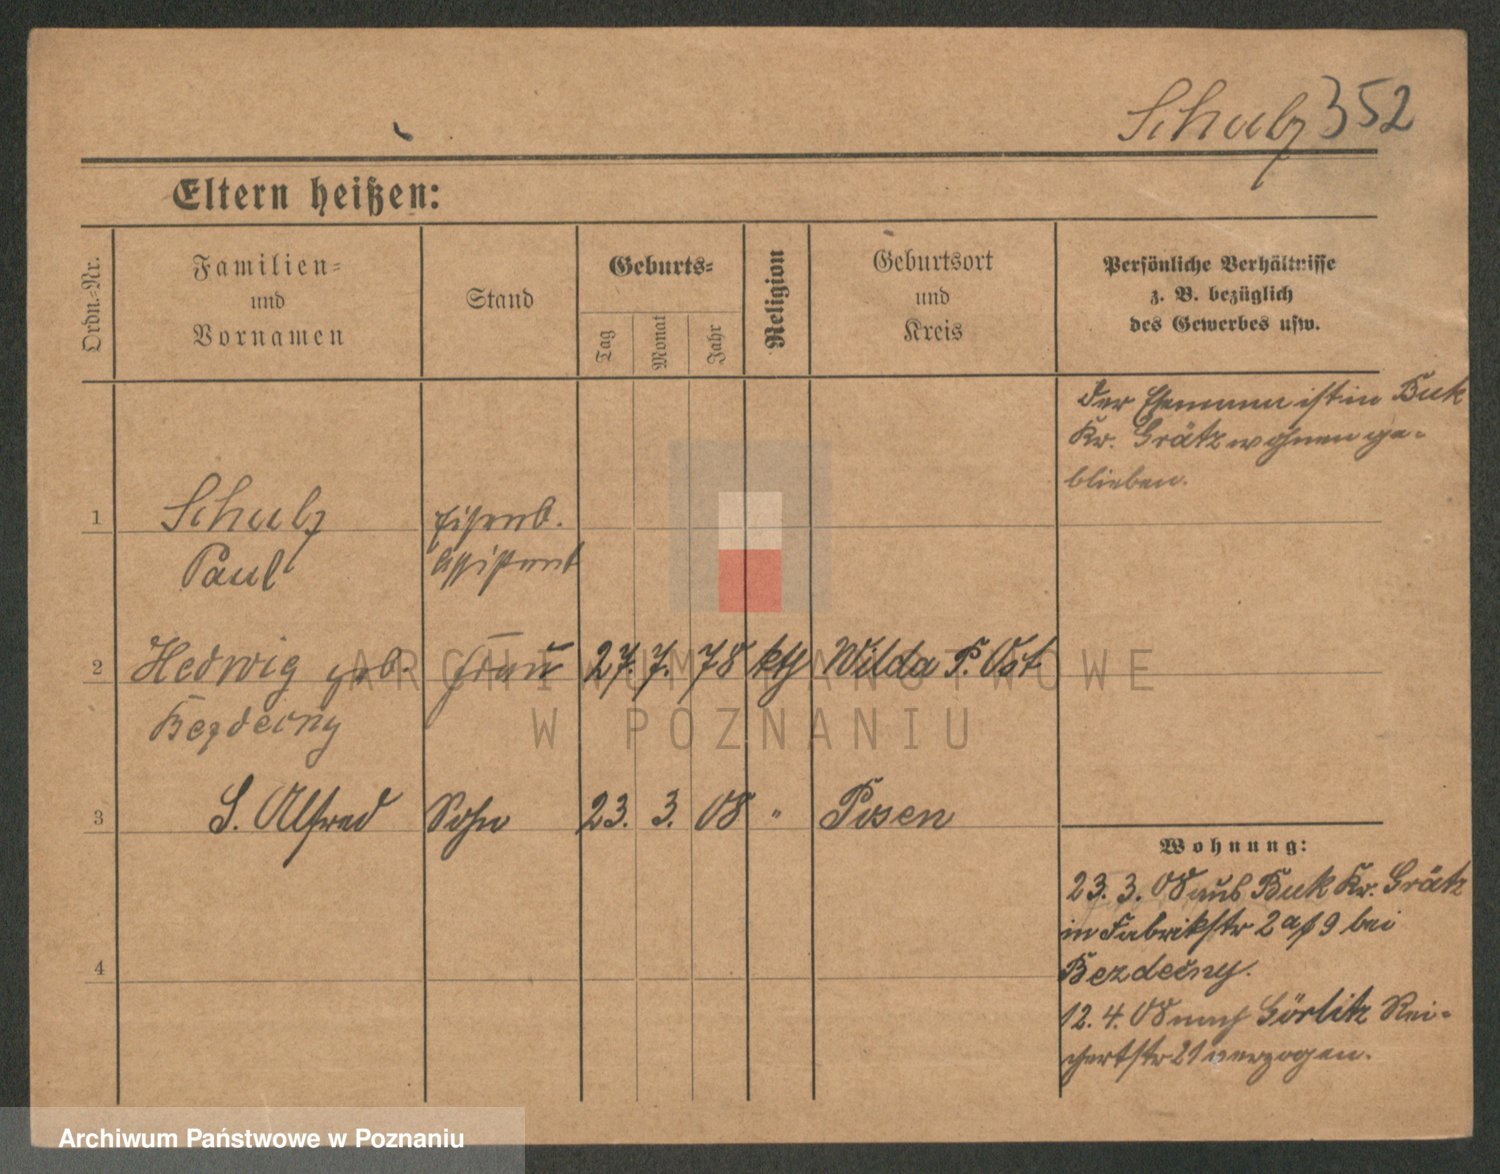 Schulz 352
Eltern heißen:
Ordn.-Nr.
Familien-
und
Vornamen
Stand
Geburts-
Tag
Monat
Jahr
Religion
Geburtsort
und
Kreis
Persönliche Verhältnisse
z. B. bezüglich
des Gewerbes usw.
Der Ehemann ist in Buk
Kr. Grätz wohnen ge-
blieben.
1 Schulz Eisenb.
Paul Assistent
2 Hedwig geb. Frau 27. 7. 78 kth Wilda P. Ost
Bezdecny
3 S. Alfred Sohn 23. 3. 08 " Posen
4
Wohnung:
23. 3. 08 aus Buk Kr. Grätz
in Fabrikstr 2 9 bei
Bezdecny.
12. 4. 08 nach Görlitz Rei-
chertstr 21 verzogen.
ARCHIWUM PAŃSTWOWE
W POZNANIU
Archiwum Państwowe w Poznaniu